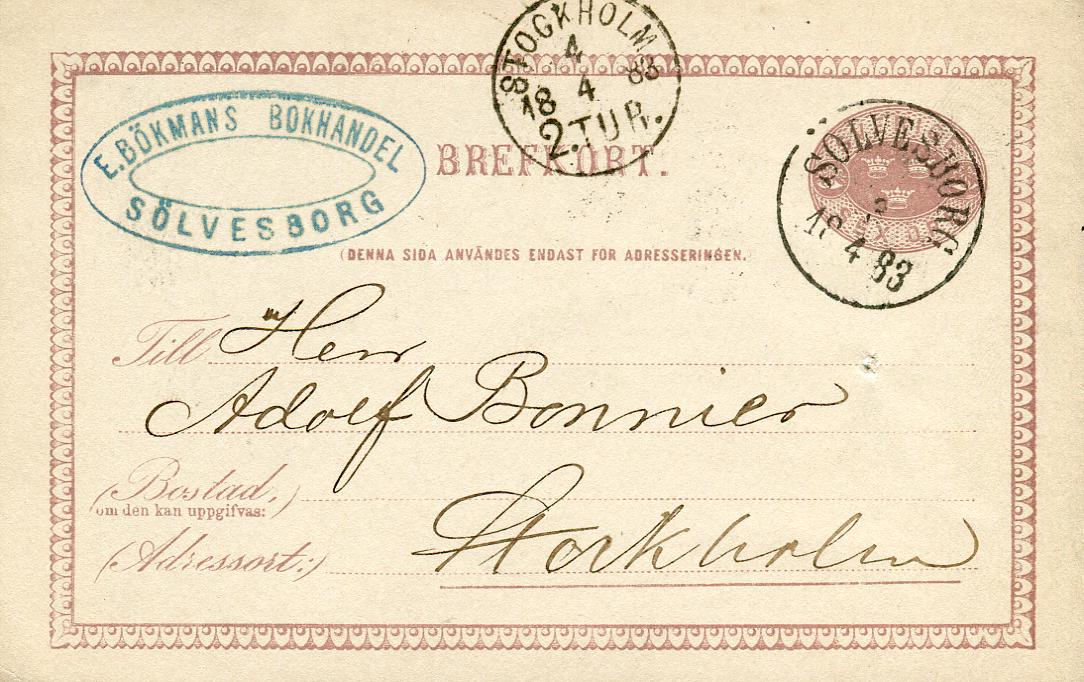 STOCKHOLM
4
18 4 83
2.TUR.
E.BÖKMANS BOKHANDEL
SÖLVESBORG
BREFKORT.
SÖLVESBORG
3
18 4 83
(DENNA SIDA ANVÄNDES ENDAST FÖR ADRESSERINGEN.)
Till Herr
Adolf Bonnier
(Bostad,)
om den kan uppgifvas:
Stockholm
(Adressort:)